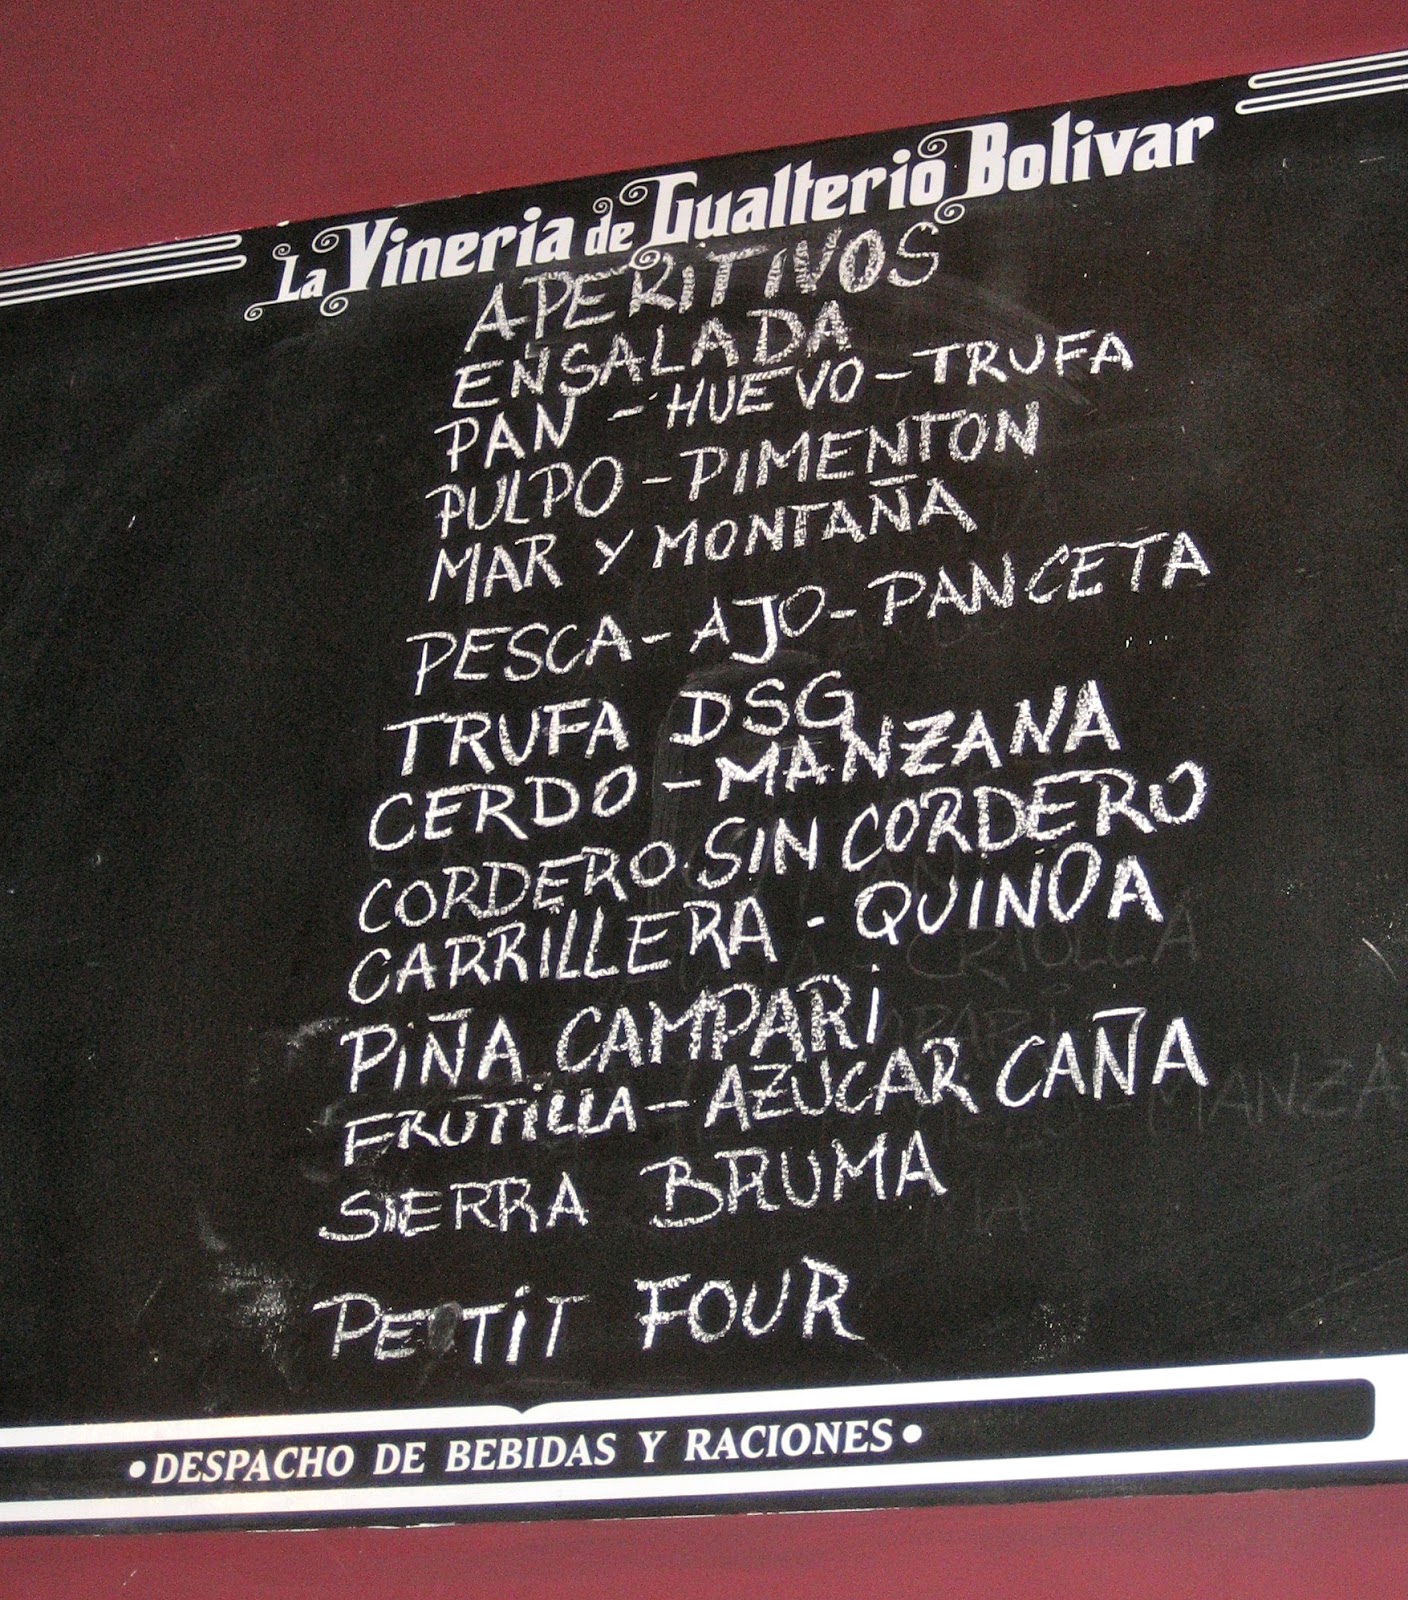 La Vineria de Gualterio Bolivar
APERITIVOS
ENSALADA
PAN - HUEVO - TRUFA
PULPO - PIMENTON
MAR Y MONTAÑA
PESCA - AJO - PANCETA
TRUFA DSG
CERDO - MANZANA
CORDERO SIN CORDERO
CARRILLERA - QUINOA
PIÑA CAMPARI
FRUTILLA - AZUCAR CAÑA
SIERRA BRUMA
PETIT FOUR
•DESPACHO DE BEBIDAS Y RACIONES•